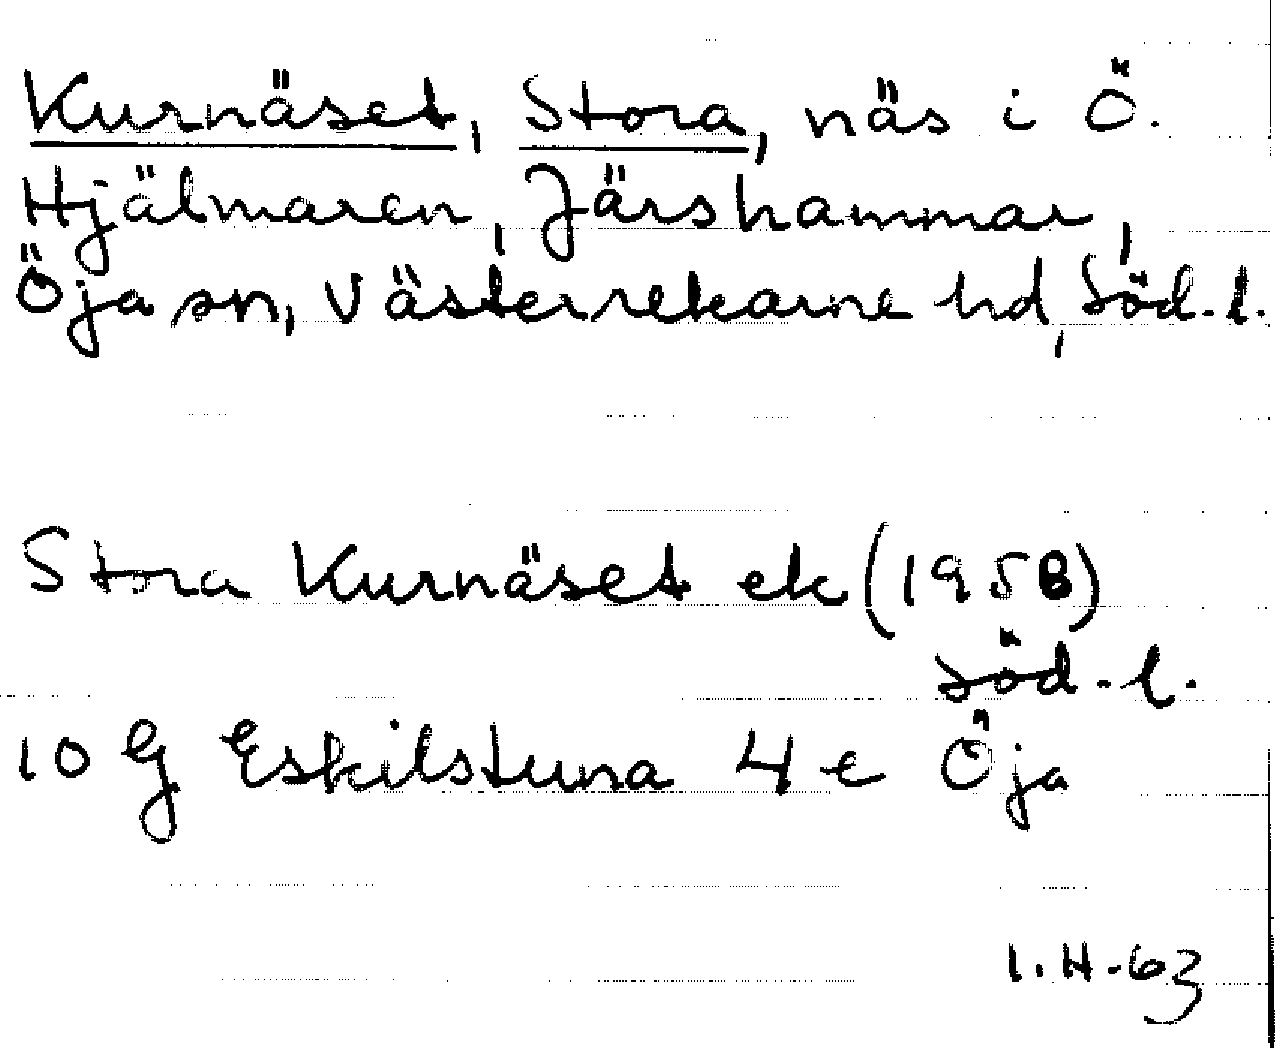 Kurnäset, Stora, näs i Ö.
Hjälmaren, Järshammar,
Öja sn, Västerrekarne hd, Söd.l.
Stora Kurnäset ek (1958)
Söd.l.
10 G Eskilstuna 4 e Öja
I.H-63